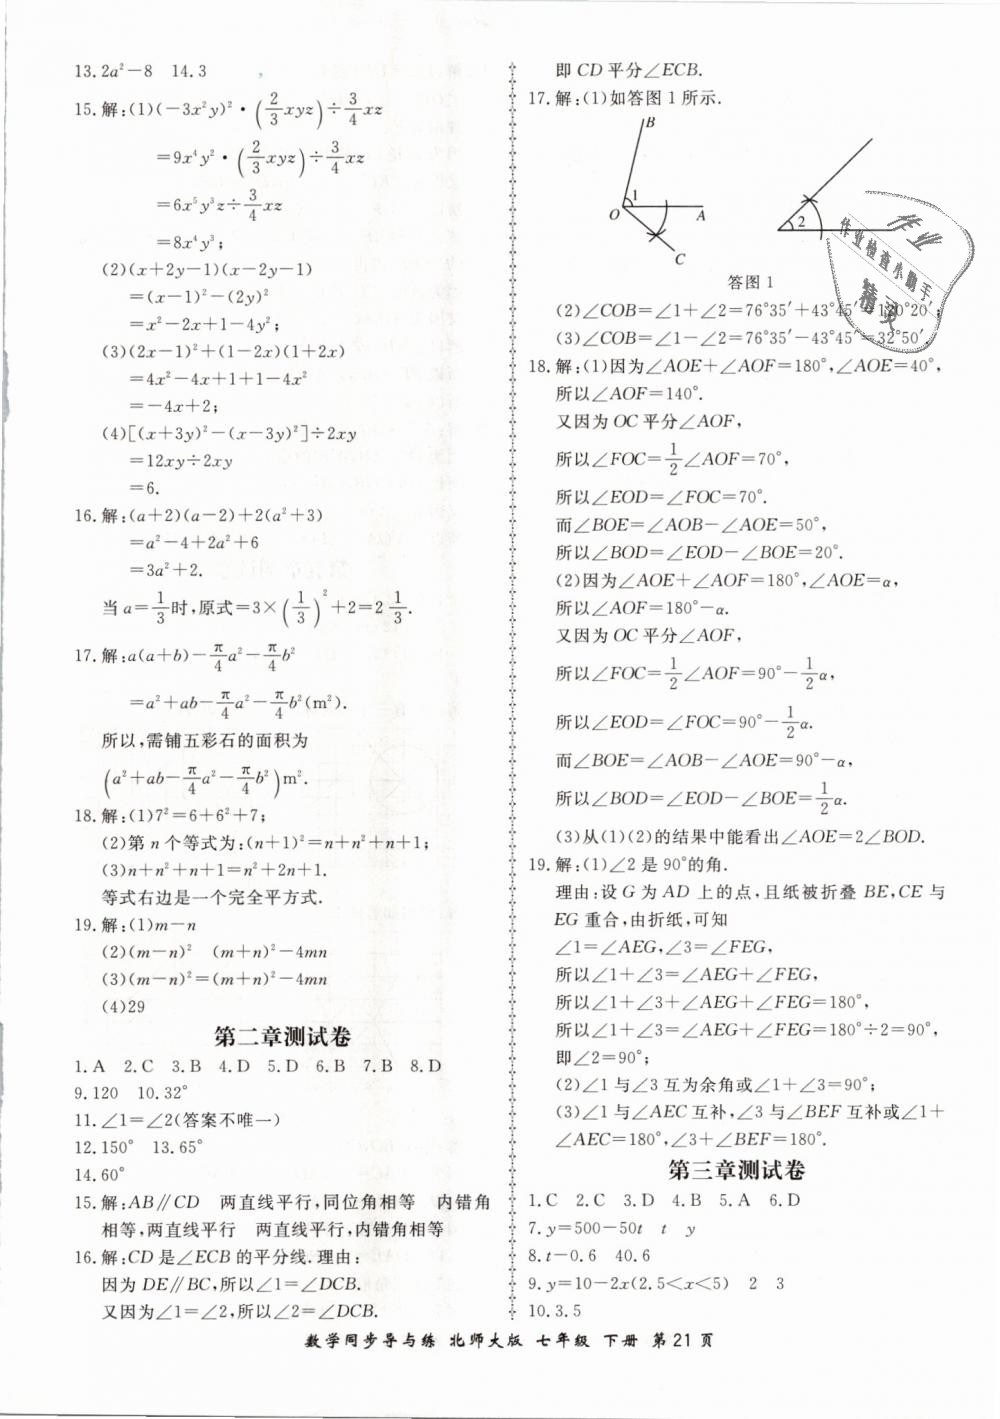 13.2a²-8  14.3
15.解:(1)(-3x²y)²·(2/3xyz)÷3/4xz
=9x⁴y²·(2/3xyz)÷3/4xz
=6x⁵y³z÷3/4xz
=8x⁴y³;
(2)(x+2y-1)(x-2y-1)
=(x-1)²-(2y)²
=x²-2x+1-4y²;
(3)(2x-1)²+(1-2x)(1+2x)
=4x²-4x+1+1-4x²
=-4x+2;
(4)[(x+3y)²-(x-3y)²]÷2xy
=12xy÷2xy
=6.
16.解:(a+2)(a-2)+2(a²+3)
=a²-4+2a²+6
=3a²+2.
当a=1/3时,原式=3×(1/3)²+2=2 1/3.
17.解:a(a+b)-π/4a²-π/4b²
=a²+ab-π/4a²-π/4b²(m²).
所以,需铺五彩石的面积为
(a²+ab-π/4a²-π/4b²)m².
18.解:(1)7²=6+6²+7;
(2)第n个等式为:(n+1)²=n+n²+n+1;
(3)n+n²+n+1=n²+2n+1.
等式右边是一个完全平方式.
19.解:(1)m-n
(2)(m-n)²  (m+n)²-4mn
(3)(m-n)²=(m+n)²-4mn
(4)29
第二章测试卷
1.A  2.C  3.B  4.D  5.D  6.B  7.B  8.D
9.120  10.32°
11.∠1=∠2(答案不唯一)
12.150°  13.65°
14.60°
15.解:AB∥CD  两直线平行,同位角相等  内错角
相等,两直线平行  两直线平行,内错角相等
16.解:CD是∠ECB的平分线.理由:
因为DE∥BC,所以∠1=∠DCB.
又因为∠1=∠2,所以∠2=∠DCB.
即CD平分∠ECB.
17.解:(1)如答图1所示.
B
1
O
A
C
2
答图1
(2)∠COB=∠1+∠2=76°35′+43°45′=120°20′;
(3)∠COB=∠1-∠2=76°35′-43°45′=32°50′.
作业
作业检查小助手
精灵
18.解:(1)因为∠AOE+∠AOF=180°,∠AOE=40°,
所以∠AOF=140°.
又因为OC平分∠AOF,
所以∠FOC=1/2∠AOF=70°,
所以∠EOD=∠FOC=70°.
而∠BOE=∠AOB-∠AOE=50°,
所以∠BOD=∠EOD-∠BOE=20°.
(2)因为∠AOE+∠AOF=180°,∠AOE=α,
所以∠AOF=180°-α.
又因为OC平分∠AOF,
所以∠FOC=1/2∠AOF=90°-1/2α,
所以∠EOD=∠FOC=90°-1/2α.
而∠BOE=∠AOB-∠AOE=90°-α,
所以∠BOD=∠EOD-∠BOE=1/2α.
(3)从(1)(2)的结果中能看出∠AOE=2∠BOD.
19.解:(1)∠2是90°的角.
理由:设G为AD上的点,且纸被折叠BE,CE与
EG重合,由折纸,可知
∠1=∠AEG,∠3=∠FEG,
所以∠1+∠3=∠AEG+∠FEG,
所以∠1+∠3+∠AEG+∠FEG=180°,
所以∠1+∠3=∠AEG+∠FEG=180°÷2=90°,
即∠2=90°;
(2)∠1与∠3互为余角或∠1+∠3=90°;
(3)∠1与∠AEC互补,∠3与∠BEF互补或∠1+
∠AEC=180°,∠3+∠BEF=180°.
第三章测试卷
1.C  2.C  3.D  4.B  5.A  6.D
7.y=500-50t  t  y
8.t-0.6  40.6
9.y=10-2x(2.5<x<5)  2  3
10.3.5
数学同步导与练  北师大版  七年级  下册  第21页